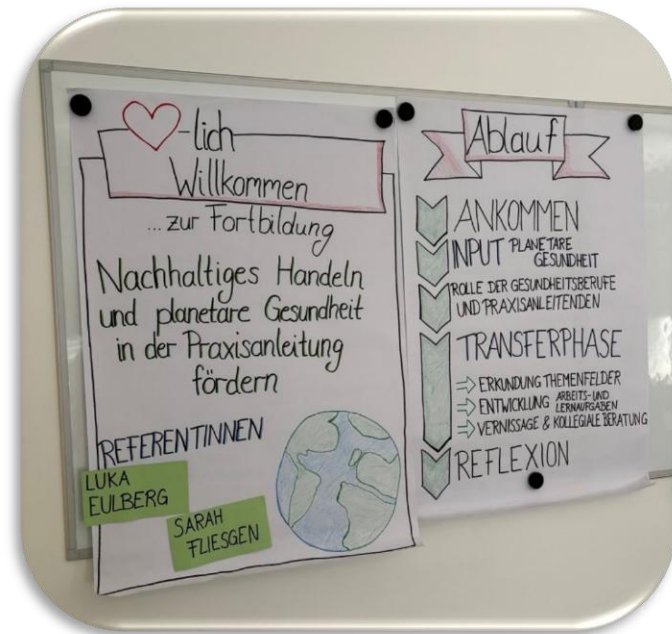 -lich
Willkommen
...zur Fortbildung
Nachhaltiges Handeln
und planetare Gesundheit
in der Praxisanleitung
fördern
REFERENTINNEN
LUKA
EULBERG
SARAH
FLIESGEN
Ablauf
ANKOMMEN
INPUT PLANETARE
GESUNDHEIT
ROLLE DER GESUNDHEITSBERUFE
UND PRAXISANLEITENDEN
TRANSFERPHASE
⇒ ERKUNDUNG THEMENFELDER
⇒ ENTWICKLUNG ARBEITS- UND
LERNAUFGABEN
⇒ VERNISSAGE & KOLLEGIALE BERATUNG
REFLEXION